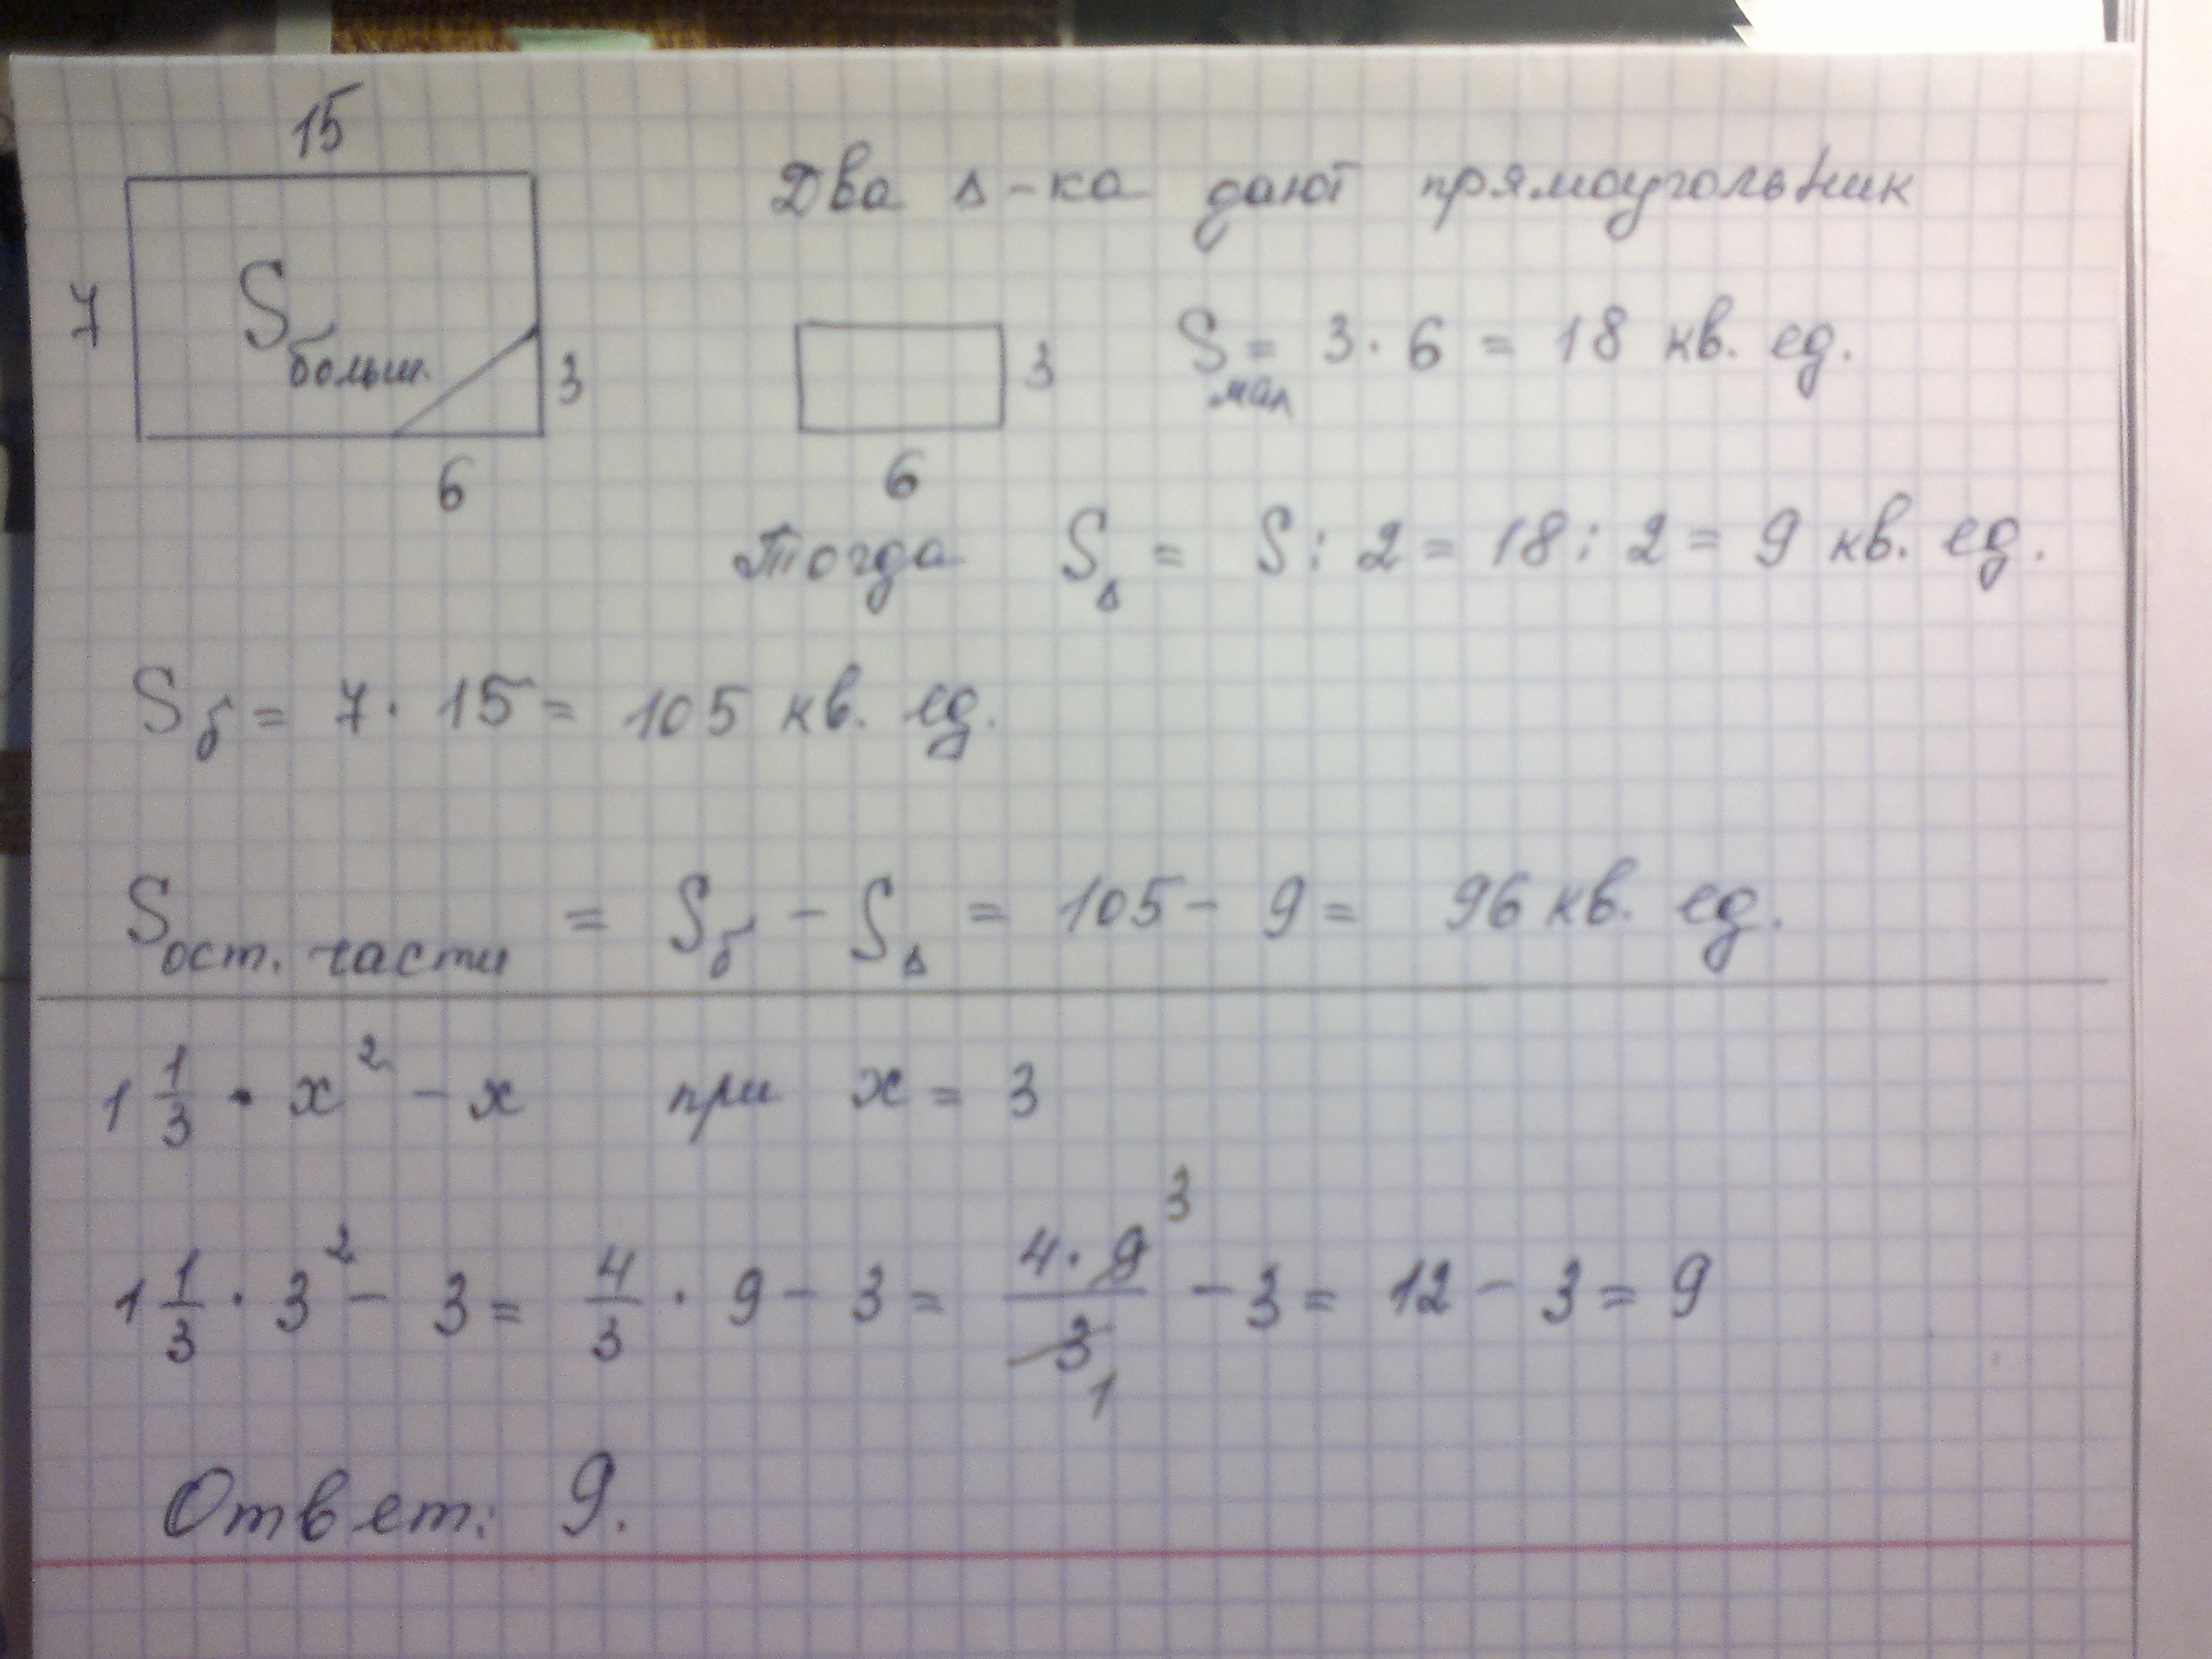 15
Два Δ-ка дают прямоугольник
7
S больш.
3
6
3
6
S мал = 3 · 6 = 18 кв. ед.
Тогда S Δ = S : 2 = 18 : 2 = 9 кв. ед.
S б = 7 · 15 = 105 кв. ед.
S ост. части = S б - S Δ = 105 - 9 = 96 кв. ед.
1 1/3 · x² - x при x = 3
1 1/3 · 3² - 3 = 4/3 · 9 - 3 = 4 · 9 3 / 3 1 - 3 = 12 - 3 = 9
Ответ: 9.